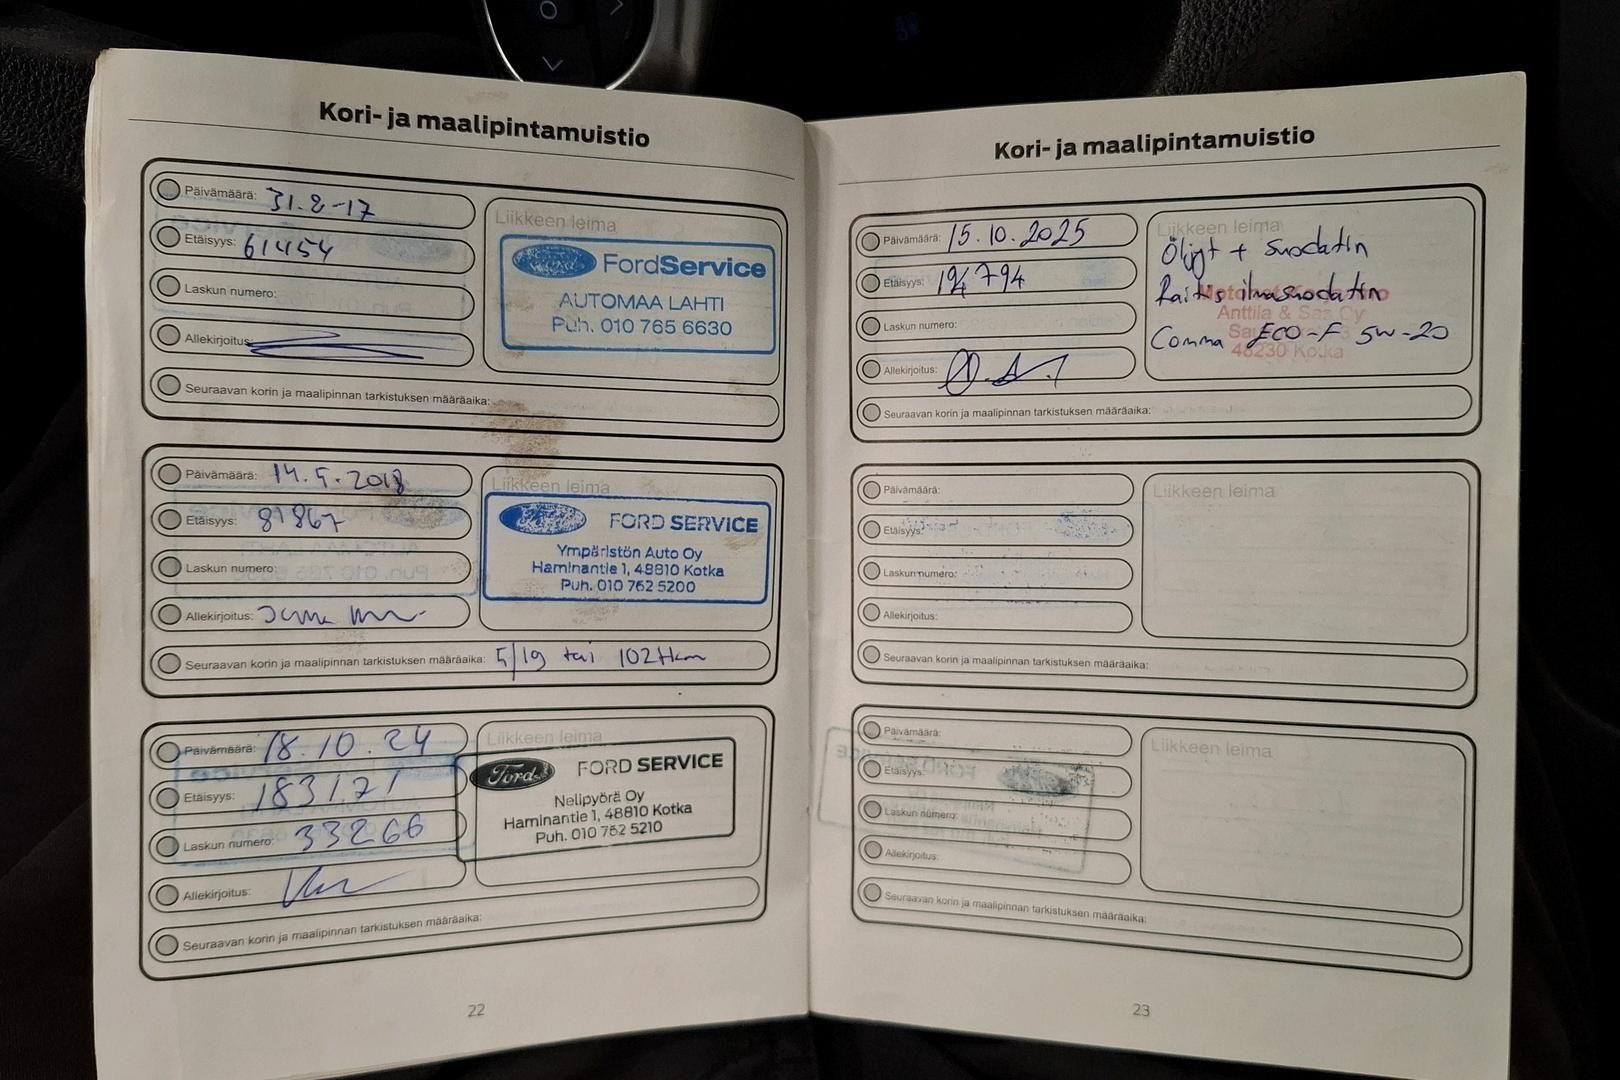 Kori- ja maalipintamuistio
Päivämäärä: 31.8-17
Etäisyys: 61454
Laskun numero:
Allekirjoitus:
Liikkeen leima
Ford FordService
AUTOMAA LAHTI
Puh. 010 765 6630
Seuraavan korin ja maalipinnan tarkistuksen määräaika:
Päivämäärä: 14.5.2018
Etäisyys: 81867
Laskun numero:
Allekirjoitus:
Liikkeen leima
Ford FORD SERVICE
Ympäristön Auto Oy
Haminantie 1, 48810 Kotka
Puh. 010 762 5200
Seuraavan korin ja maalipinnan tarkistuksen määräaika: 5/19 tai 102tkm
Päivämäärä: 18.10.24
Etäisyys: 183171
Laskun numero: 33266
Allekirjoitus:
Liikkeen leima
Ford FORD SERVICE
Nelipyörä Oy
Haminantie 1, 48810 Kotka
Puh. 010 762 5210
Seuraavan korin ja maalipinnan tarkistuksen määräaika:
22
Kori- ja maalipintamuistio
Päivämäärä: 15.10.2025
Etäisyys: 194794
Laskun numero:
Allekirjoitus:
Liikkeen leima
Öljyt + suodatin
Raitis ilmasuodatin
Anttila & Oy
Comma ECO-F 5W-20
48230 Kotka
Seuraavan korin ja maalipinnan tarkistuksen määräaika:
Päivämäärä:
Etäisyys:
Laskun numero:
Allekirjoitus:
Liikkeen leima
Seuraavan korin ja maalipinnan tarkistuksen määräaika:
Päivämäärä:
Etäisyys:
Laskun numero:
Allekirjoitus:
Liikkeen leima
Seuraavan korin ja maalipinnan tarkistuksen määräaika:
23